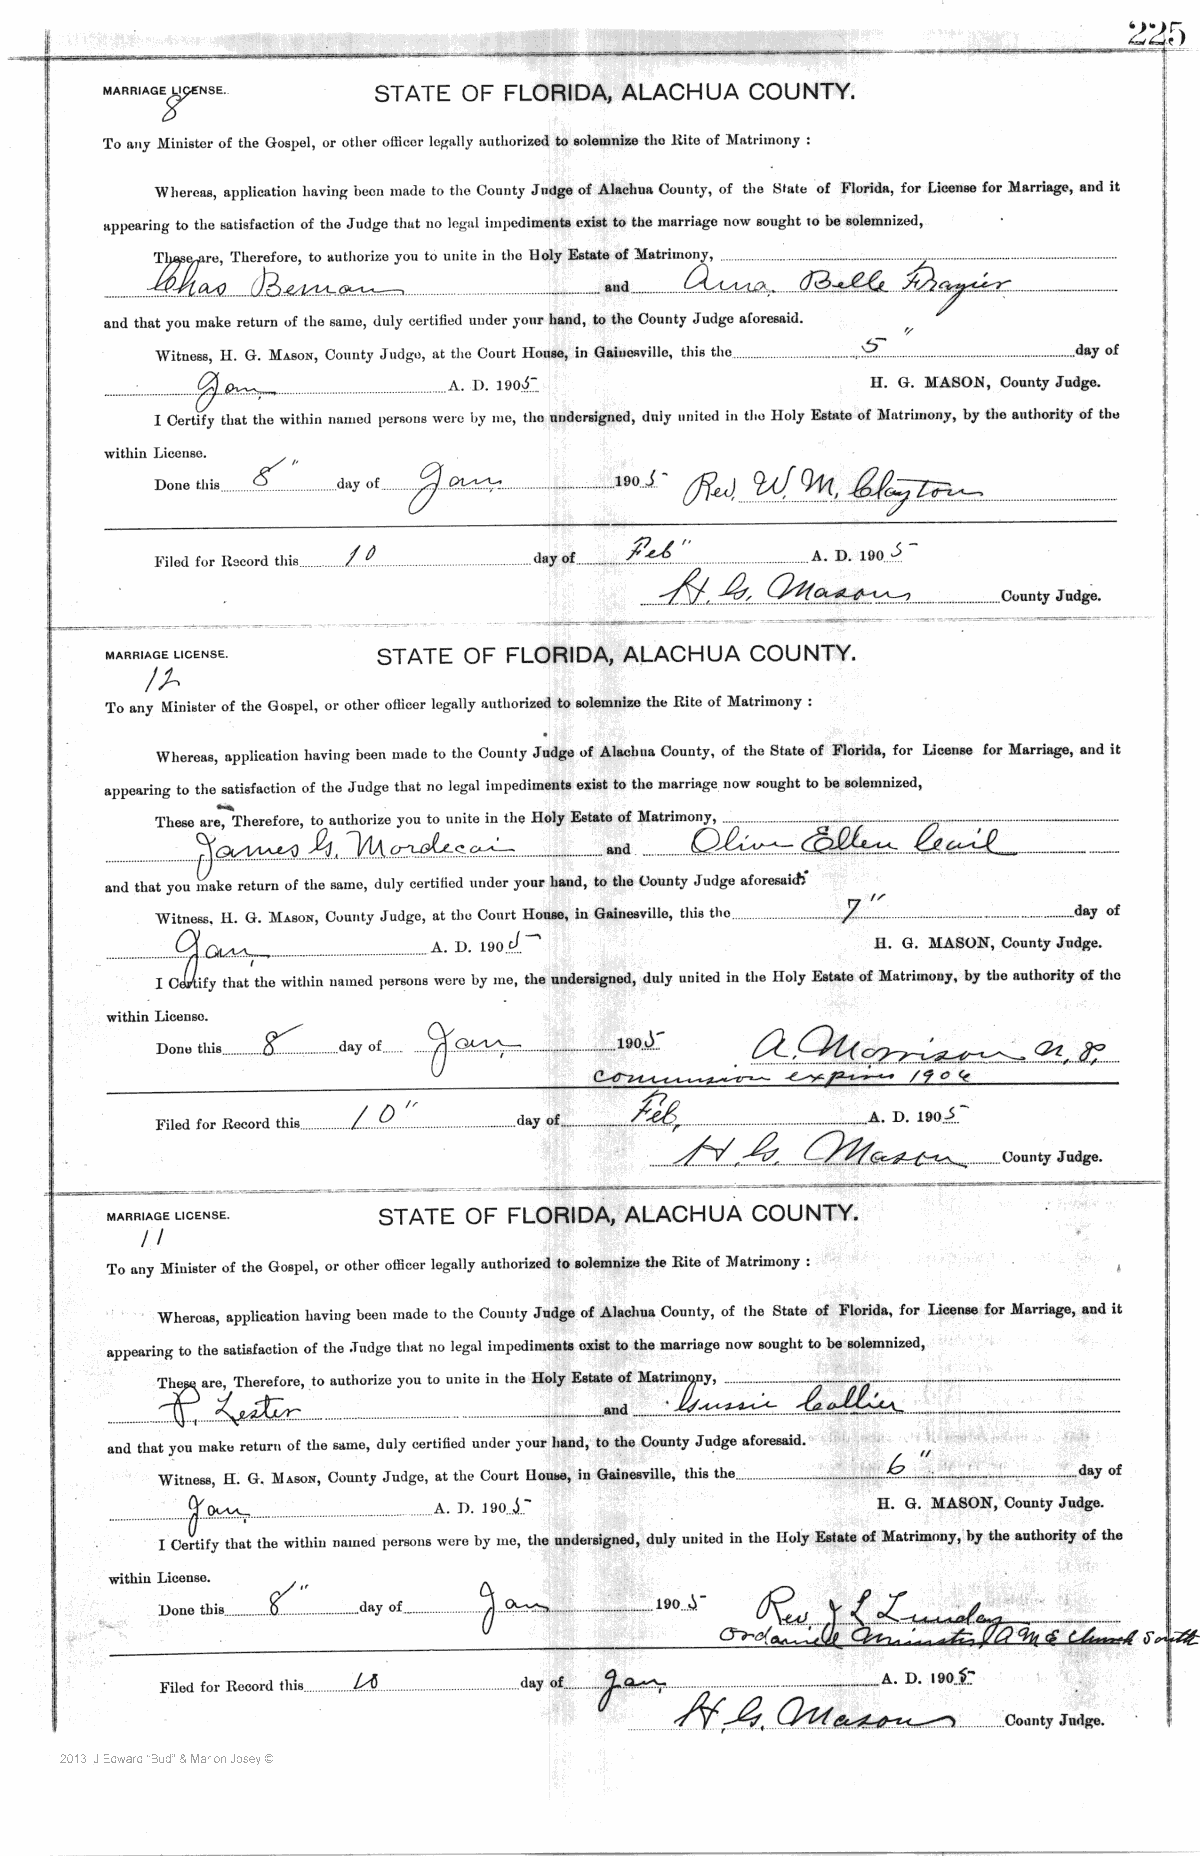 225
MARRIAGE LICENSE. STATE OF FLORIDA, ALACHUA COUNTY.
8
To any Minister of the Gospel, or other officer legally authorized to solemnize the Rite of Matrimony :
Whereas, application having been made to the County Judge of Alachua County, of the State of Florida, for License for Marriage, and it
appearing to the satisfaction of the Judge that no legal impediments exist to the marriage now sought to be solemnized,
These are, Therefore, to authorize you to unite in the Holy Estate of Matrimony,
Chas Beman and Anna Belle Frazier
and that you make return of the same, duly certified under your hand, to the County Judge aforesaid.
Witness, H. G. MASON, County Judge, at the Court House, in Gainesville, this the 5" day of
Jan, A. D. 1905 H. G. MASON, County Judge.
I Certify that the within named persons were by me, the undersigned, duly united in the Holy Estate of Matrimony, by the authority of the
within License.
Done this 8" day of Jan, 1905 Rev. W. M. Clayton
Filed for Record this 10 day of Feb" A. D. 1905
H. G. Mason County Judge.
MARRIAGE LICENSE. STATE OF FLORIDA, ALACHUA COUNTY.
12
To any Minister of the Gospel, or other officer legally authorized to solemnize the Rite of Matrimony :
Whereas, application having been made to the County Judge of Alachua County, of the State of Florida, for License for Marriage, and it
appearing to the satisfaction of the Judge that no legal impediments exist to the marriage now sought to be solemnized,
These are, Therefore, to authorize you to unite in the Holy Estate of Matrimony,
James G. Mordecai and Olive Ellen Cail
and that you make return of the same, duly certified under your hand, to the County Judge aforesaid.
Witness, H. G. MASON, County Judge, at the Court House, in Gainesville, this the 7" day of
Jan, A. D. 1905 H. G. MASON, County Judge.
I Certify that the within named persons were by me, the undersigned, duly united in the Holy Estate of Matrimony, by the authority of the
within License.
Done this 8 day of Jan, 1905 A. Morrison N. P.
commission expires 1906
Filed for Record this 10" day of Feb, A. D. 1905
H. G. Mason County Judge.
MARRIAGE LICENSE. STATE OF FLORIDA, ALACHUA COUNTY.
11
To any Minister of the Gospel, or other officer legally authorized to solemnize the Rite of Matrimony :
Whereas, application having been made to the County Judge of Alachua County, of the State of Florida, for License for Marriage, and it
appearing to the satisfaction of the Judge that no legal impediments exist to the marriage now sought to be solemnized,
These are, Therefore, to authorize you to unite in the Holy Estate of Matrimony,
P. Lester and Gussie Collier
and that you make return of the same, duly certified under your hand, to the County Judge aforesaid.
Witness, H. G. MASON, County Judge, at the Court House, in Gainesville, this the 6" day of
Jan, A. D. 1905 H. G. MASON, County Judge.
I Certify that the within named persons were by me, the undersigned, duly united in the Holy Estate of Matrimony, by the authority of the
within License.
Done this 8" day of Jan 1905 Rev J L Lunday
Minister, A M E Church South
Filed for Record this 10 day of Jan, A. D. 1905
H. G. Mason County Judge.
2013 J Edward "Bud" & Marion Josey ©